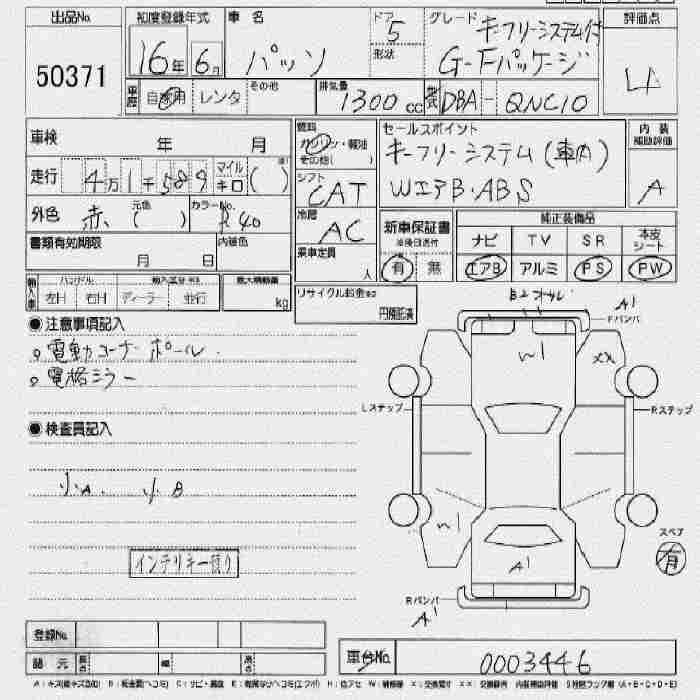 出品No. 初度登録年式 車名 ドア 5 グレード キーフリーシステム付 評価点
50371 16年 6月 パッソ 形状 G-Fパッケージ
車歴 自家用 レンタ その他 排気量 1300cc 型式 DBA-QNC10
車検 年 月 燃料 ガソリン・軽油 その他( ) セールスポイント 内装補助評価
走行 4万1千589 マイル キロ ( ) シフト CAT キーフリーシステム(車内) A
WエアB・ABS
外色 赤 元色 ( ) カラーNo. R40 冷房 AC 新車保証書 車後日送付 純正装備品
ナビ TV SR 本皮シート
書類有効期限 月 日 内装色 乗車定員 人 有 無 エアB アルミ PS PW
輸入車 ハンドル 左H 右H ディーラー 並行 最大積載量 kg リサイクル預託金 円預託済
●注意事項記入
。電動コーナーポール
。電格ミラー
●検査員記入
小A. 小B
インテリキー有り
A1
Fバンパ
W1
XX
Lステップ
Rステップ
W1
A1
スペア
有
Rバンパ
A1
登録No. 車台No. 0003446
諸元 長さ 幅 高さ